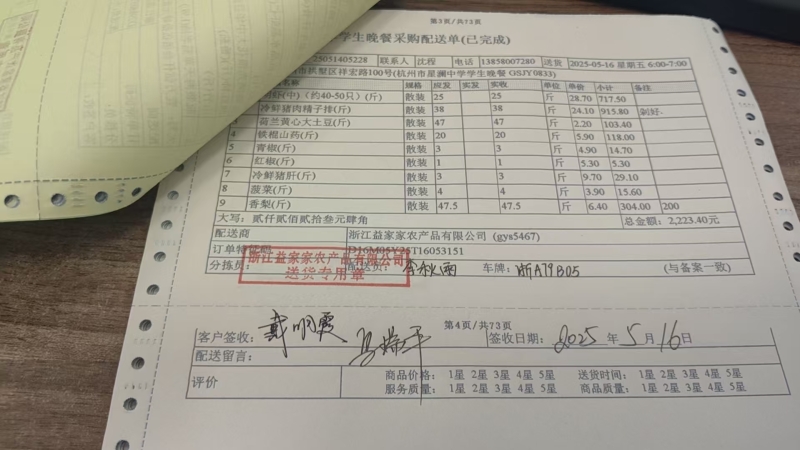 第3页/共73页
学生晚餐采购配送单(已完成)
25051405228 联系人 沈程 电话 13858007280 送货 2025-05-16 星期五 6:00-7:00
市拱墅区祥宏路100号(杭州市星澜中学学生晚餐 GSJY0833)
名称 规格 应发 实发 实收 单位 单价 小计 备注
(中)（约40-50只）(斤) 散装 25 25 斤 28.70 717.50
冷鲜猪肉精子排(斤) 散装 38 38 斤 24.10 915.80 剁好.
荷兰黄心大土豆(斤) 散装 47 47 斤 2.20 103.40
4 铁棍山药(斤) 散装 20 20 斤 5.90 118.00
5 青椒(斤) 散装 3 3 斤 4.90 14.70
6 红椒(斤) 散装 1 1 斤 5.30 5.30
7 冷鲜猪肝(斤) 散装 3 3 斤 9.70 29.10
8 菠菜(斤) 散装 4 4 斤 3.90 15.60
9 香梨(斤) 散装 47.5 47.5 斤 6.40 304.00 200
大写: 贰仟贰佰贰拾叁元肆角 总金额: 2,223.40元
配送商 浙江益家家农产品有限公司 (gys5467)
订单 D16M05Y25T16053151
浙江益家家农产品有限公司
送货专用章
分拣员: 车牌: 浙A79B05 (与备案一致)
第4页/共73页
客户签收: 戴明霞 签收日期: 2025 年 5 月 16 日
配送留言:
评价 商品价格: 1星 2星 3星 4星 5星 送货时间: 1星 2星 3星 4星 5星
服务质量: 1星 2星 3星 4星 5星 商品质量: 1星 2星 3星 4星 5星